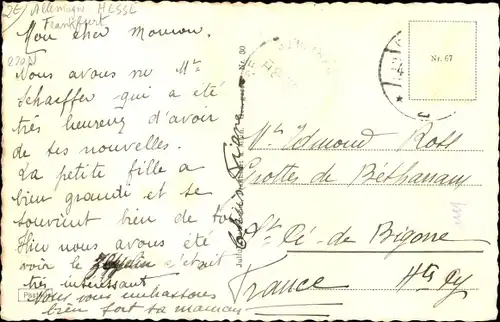 Allemagne HESSE
Frankfurt
Mon cher Momon.
Nous avons vu Mr
Schaeffer qui a été
très heureux d'avoir
de tes nouvelles.
La petite fille a
bien grandi et se
souvient bien de toi
Hier nous avons été
voir le c'était
très intéressant
Nous vous embrassons
bien fort ta maman
Nr. 67
Mr Edmond Ross
Grottes de Bétharram
St Pé-de-Bigorre
Hts Py
France